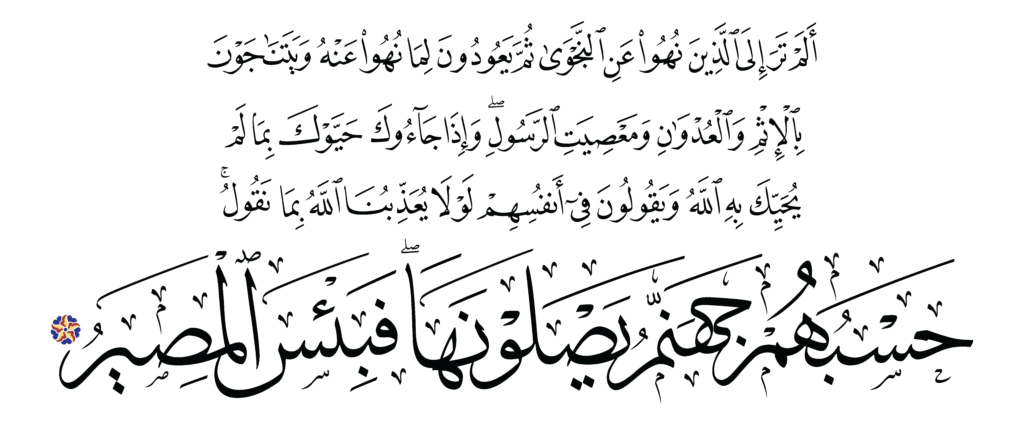 أَلَمْ تَرَ إِلَى ٱلَّذِينَ نُهُوا۟ عَنِ ٱلنَّجْوَىٰ ثُمَّ يَعُودُونَ لِمَا نُهُوا۟ عَنْهُ وَيَتَنَٰجَوْنَ
بِٱلْإِثْمِ وَٱلْعُدْوَٰنِ وَمَعْصِيَتِ ٱلرَّسُولِ ۖ وَإِذَا جَآءُوكَ حَيَّوْكَ بِمَا لَمْ
يُحَيِّكَ بِهِ ٱللَّهُ وَيَقُولُونَ فِىٓ أَنفُسِهِمْ لَوْلَا يُعَذِّبُنَا ٱللَّهُ بِمَا نَقُولُ ۚ
حَسْبُهُمْ جَهَنَّمُ يَصْلَوْنَهَا ۖ فَبِئْسَ ٱلْمَصِيرُ